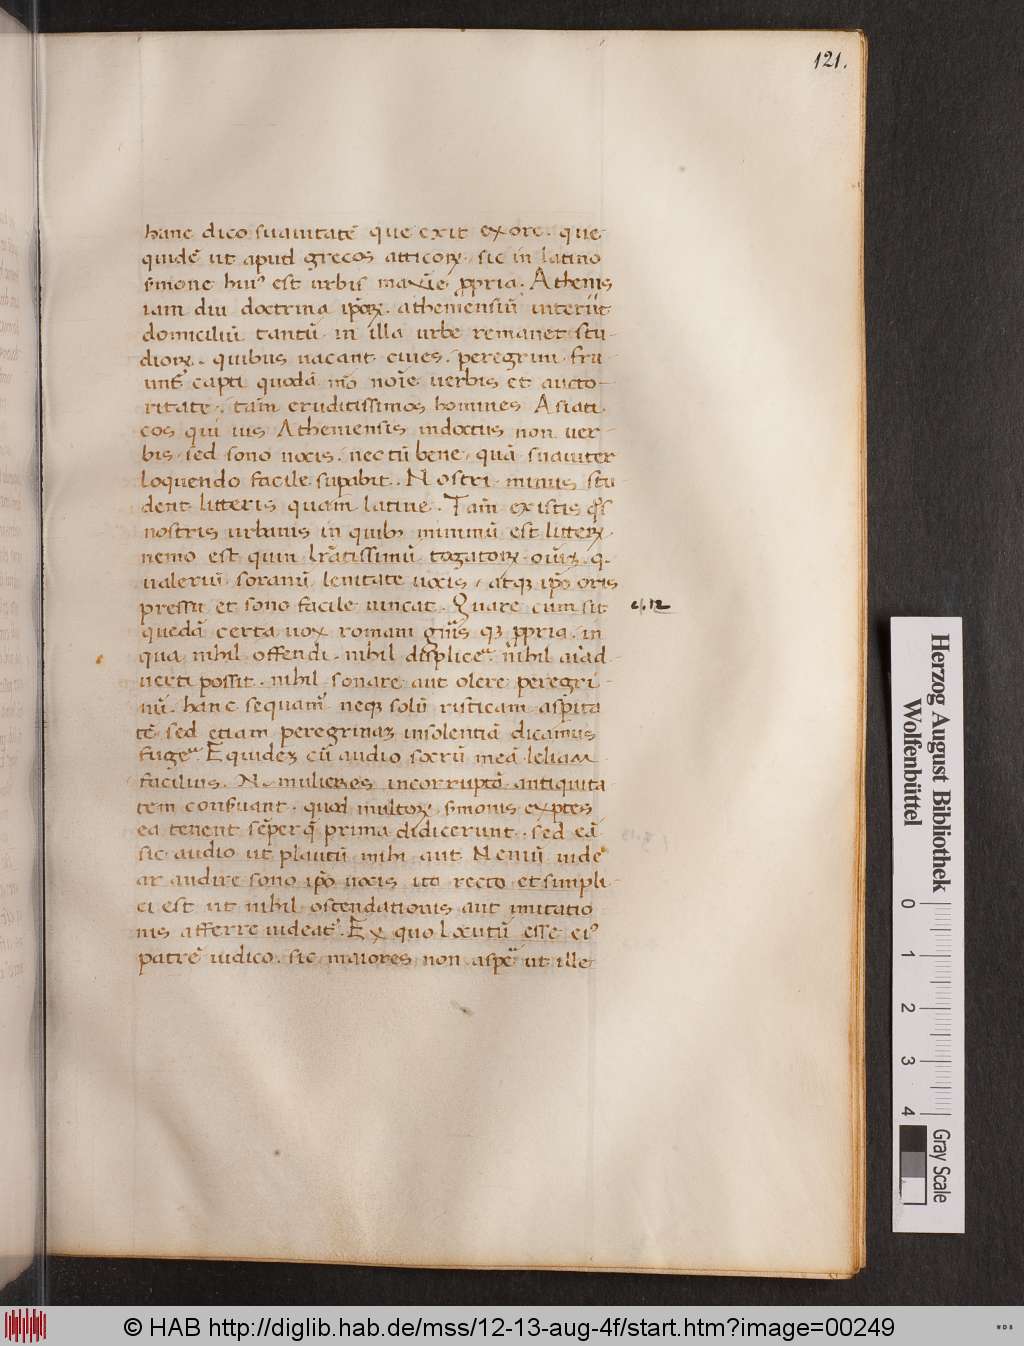 121.
hanc dico suauitatē que exit exore. que
quidē ut apud grecos atticoꝝ. sic in latino
ẜmone huiꝰ est urbis maxīe ꝓpria. Athenis
iam diu doctrina ip̄oꝝ. atheniensiū interiit
domiciliū tantū in illa urbe remanet stu-
dioꝝ. quibus uacant ciues. peregrini fru
unt̄ capti quodā mō noīe uerbis et aucto-
ritate. tam̄ eruditissimos homines Asiati
cos qui uis Atheniensis indoctus non uer
bis. sed sono uocis. nec tū bene. quā suauiter
loquendo facile supabit. Nostri minus stu
dent litteris quam latine. Tam̄ ex istis qͦs
nostris urbanis in quibꝫ minimū est litteꝝ.
nemo est quin lr̄atissimū togatoꝝ oīuꝫ. q.
ualeriū soranū lenitate uocis, atqꝫ ip̄o oris
pressu et sono facile uincat. Quare cum sit
c. 12
quedā certa uox romani gn̄is qꝫ ꝓpria. in
qua nihil offendi. nihil displice. nihil aīad
uerti possit. nihil sonare aut olere peregri
nū. hanc sequam̄. neqꝫ solū rusticam asp̄ita
tē sed etiam peregrinaꝫ insolentiā dicamus
fuge. Equidez cū audio socrū meā leliam
facilius. N. mulieres incorruptā antiquita
tem conẜuant. quod multoꝝ ẜmonis exptes
ea tenent sēperq̄ prima didicerunt. sed eā
sic audio ut plautū mihi aut Neuiū uide
ar audire sono ip̄o uocis ito recto et simpli-
ci est ut nihil ostendationis aut imitatio
nis afferre uideat̄. Ex quo locutū esse eiꝰ
patrē iudico. sic maiores non aspe ut ille
Herzog August Bibliothek
Wolfenbüttel
0 1 2 3 4
Gray Scale
© HAB http://diglib.hab.de/mss/12-13-aug-4f/start.htm?image=00249